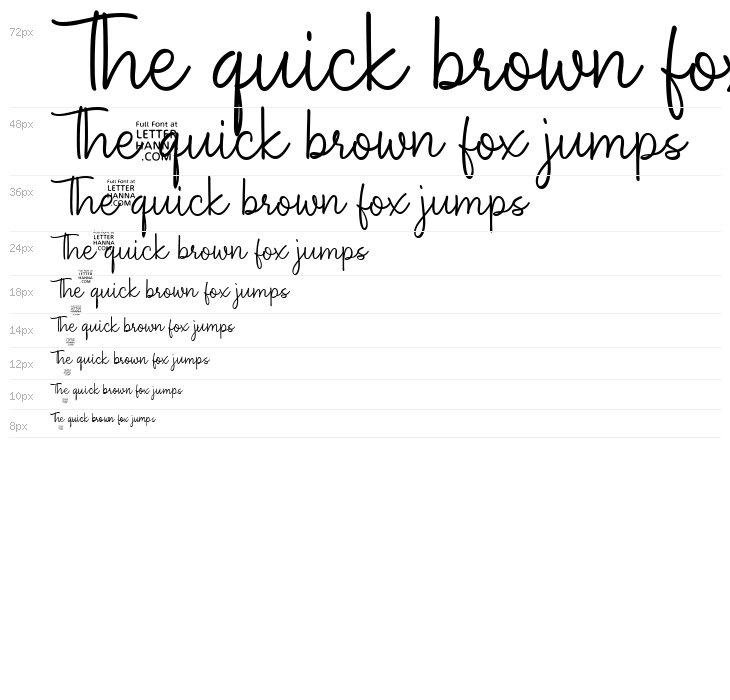 72px The quick brown fox
48px The quick brown fox jumps
Full Font at
LETTER
HANNA
.COM
36px The quick brown fox jumps
Full Font at
LETTER
HANNA
.COM
24px The quick brown fox jumps
LETTER
HANNA
.COM
18px The quick brown fox jumps
LETTER
HANNA
.COM
14px The quick brown fox jumps
12px The quick brown fox jumps
10px The quick brown fox jumps
8px The quick brown fox jumps